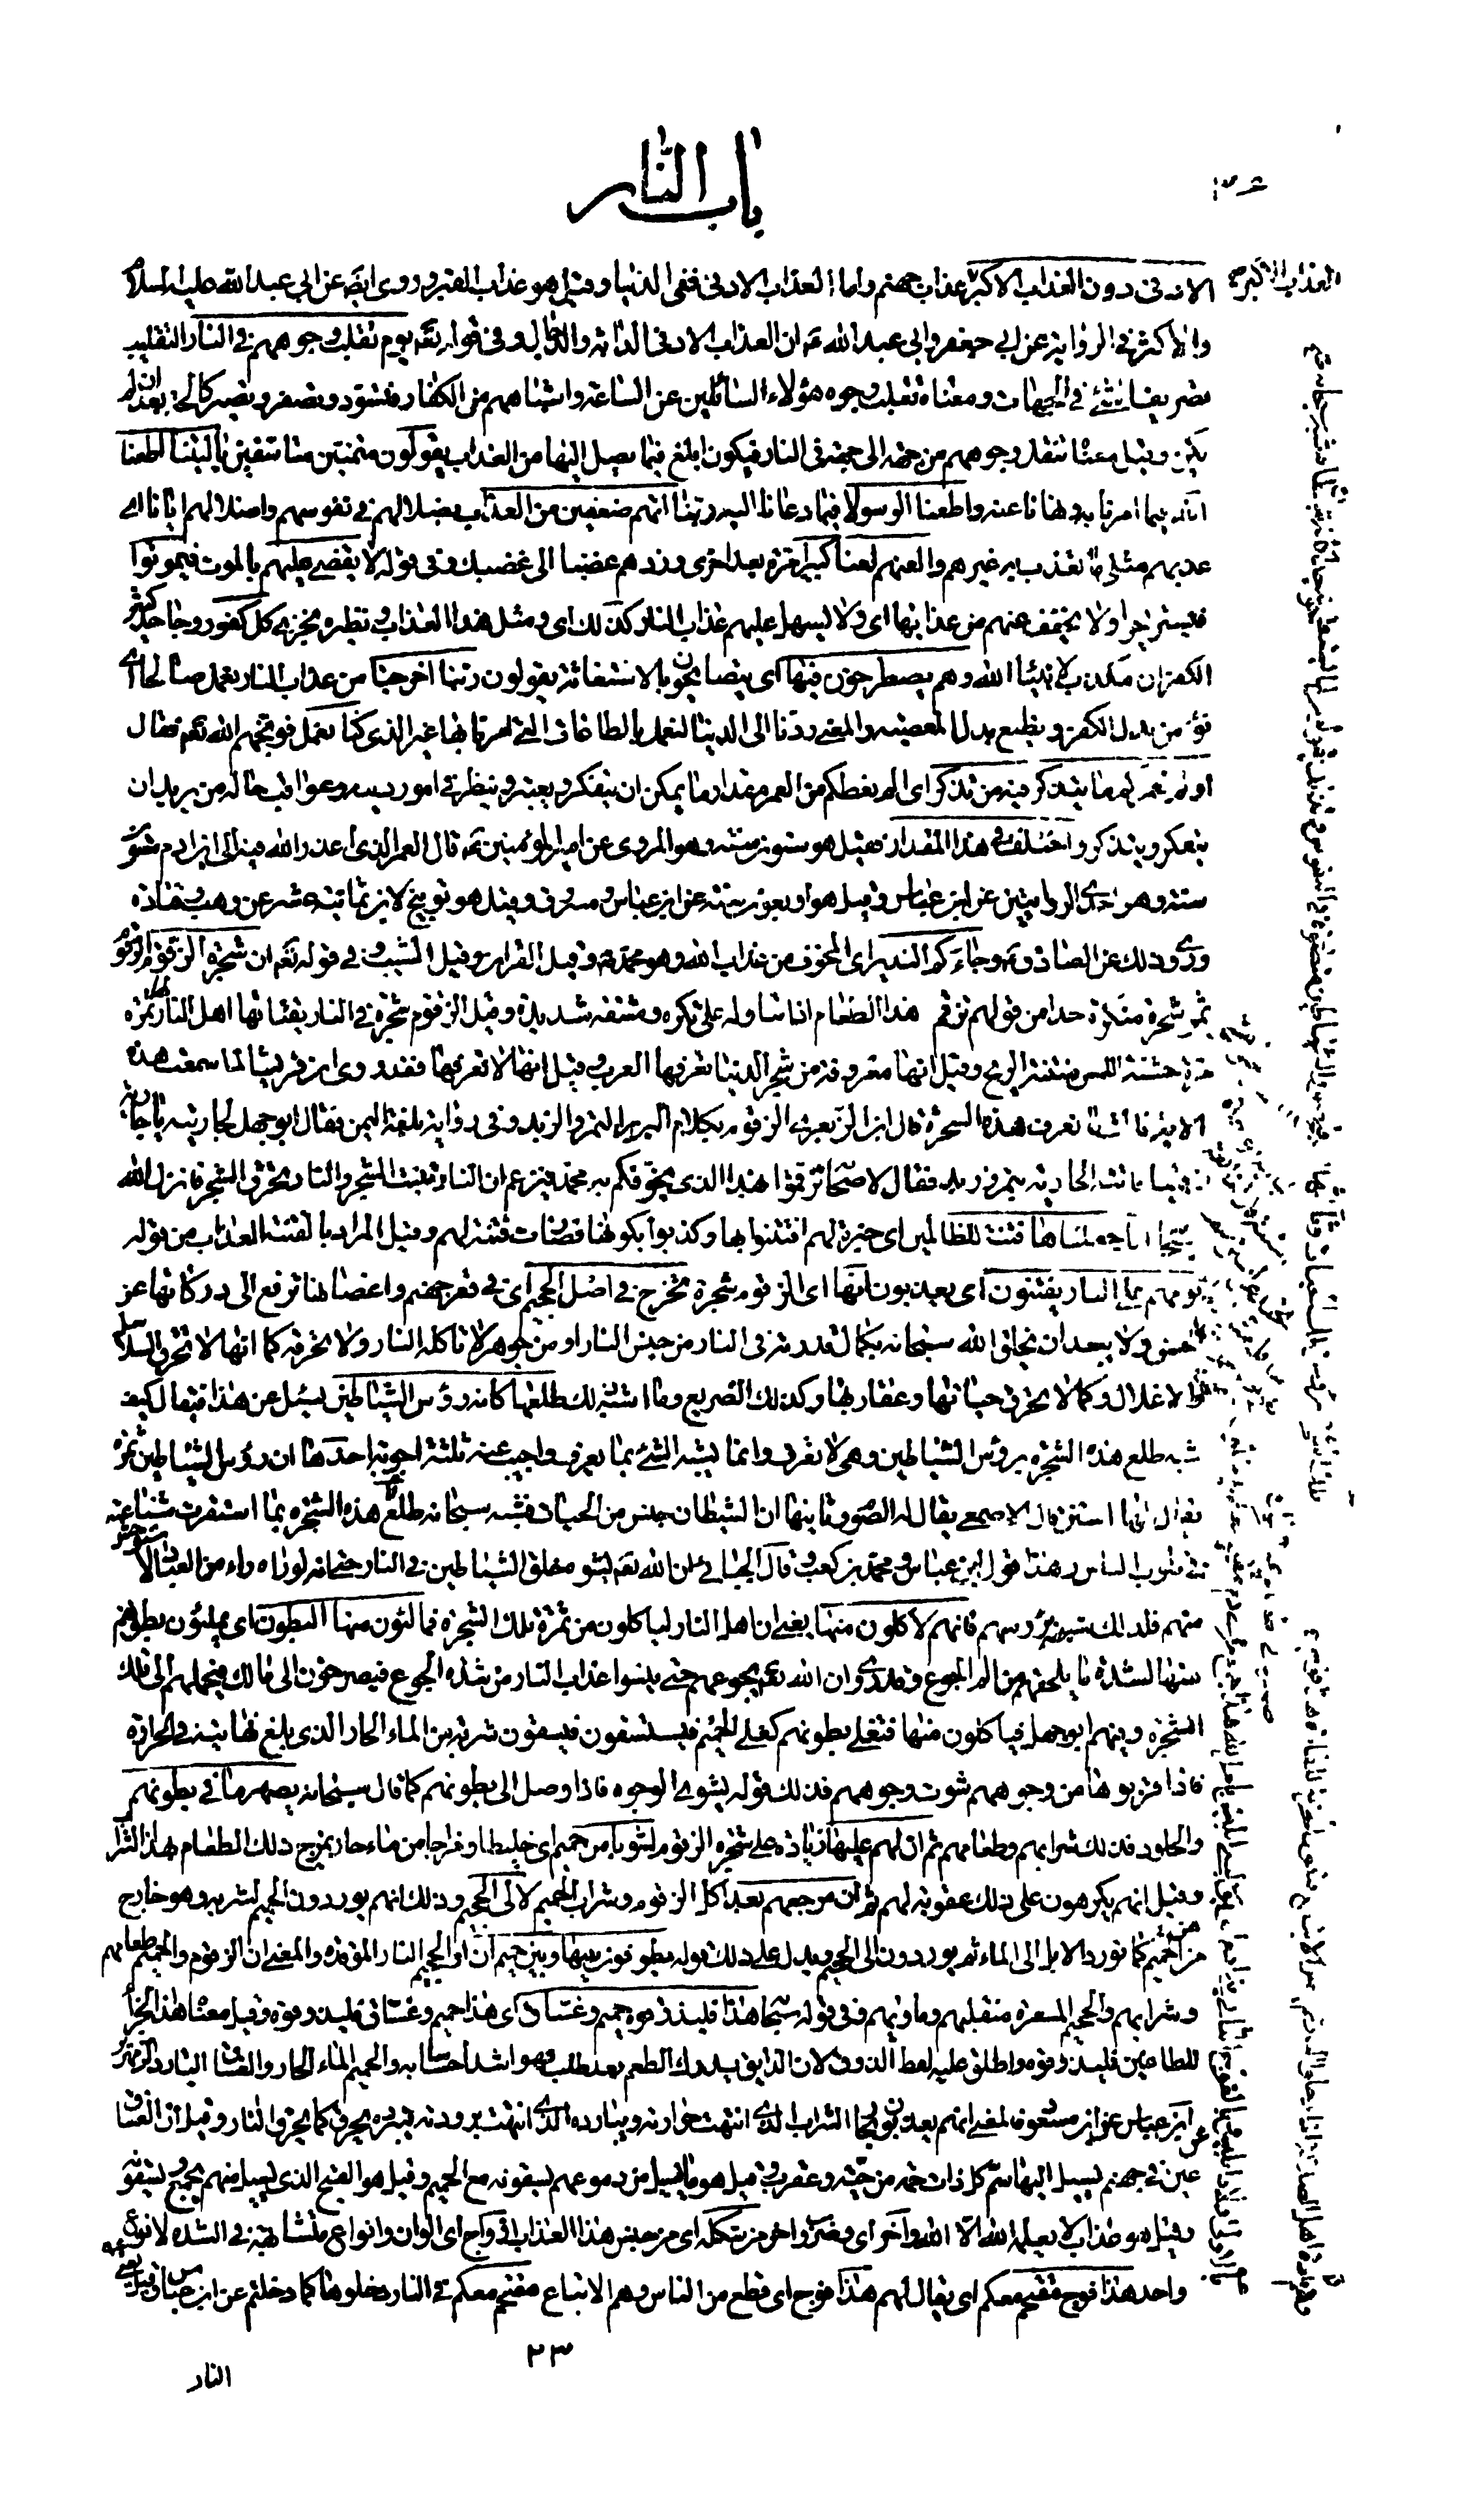 باب النار
الادنى دون العذاب الاكبر عذاب جهنم واما العذاب الادنى ففى الدنيا وقيل هو عذاب القبر وروى ايضا عن ابي عبد الله عليه السلام
والاكثر في الرواية عن ابي جعفر وابي عبد الله ع ان العذاب الادنى الدابة والدجال وفي قوله تعم يوم تقلب وجوههم في النار التقليب
تصريف الشئ في الجهات ومعناه تقلب وجوه هؤلاء السائلين عن الساعة واشباههم من الكفار فتسود وتصفر وتصير كالحة بعد ان لم
يكن وقيل معناه تنقل وجوههم من جهة الى جهة في النار فيكون ابلغ فيما يصل اليها من العذاب يقولون متمنين متاسفين يا ليتنا اطعنا
الله فيما امرنا به ونهانا عنه واطعنا الرسولا فيما دعانا اليه ربنا اتهم ضعفين من العذاب بضلالهم في نفوسهم واضلالهم ايانا اى
عذبهم مثلى ما تعذب به غيرهم والعنهم لعنا كبيرا مرة بعد اخرى وزدهم غضبا الى غضبك وفي قوله لا يقضى عليهم بالموت فيموتوا
فيستريحوا ولا يخفف عنهم من عذابها اى ولا يسهل عليهم عذاب النار كذلك اى ومثل هذا العذاب ونظيره نجزى كل كفور وجاحد كثير
الكفران مكذب لانبياء الله وهم يصطرخون فيها اى يتصايحون بالاستغاثة يقولون ربنا اخرجنا من عذاب النار نعمل صالحا اى
نؤمن بدل الكفر ونطيع بدل المعصية والمعنى ردنا الى الدنيا لنعمل بالطاعات التى تامرنا بها غير الذى كنا نعمل فوبخهم الله تعم فقال
اولم نعمركم ما يتذكر فيه من تذكر اى الم نعطكم من العمر مقدار ما يمكن ان يتفكر ويعتبر وينظر في امور دينه وعواقب حاله من يريد ان
يتفكر ويتذكر واختلف في هذا المقدار فقيل هو ستون سنة وهو المروى عن امير المؤمنين ع قال العمر الذى اعذر الله فيه الى ابن ادم ستون
سنة وهو احدى الروايتين عن ابن عباس وقيل هو اربعون سنة عن ابن عباس ومسروق وقيل هو توبيخ لابن ثمانية عشر عن وهب وقتادة
وروى ذلك عن الصادق ع وجاءكم النذير اى المخوف من عذاب الله وهو محمد ص وقيل القران وقيل الشيب وفي قوله تعم ان شجرة الزقوم الزقوم
ثمر شجرة منكرة جدا من قولهم تزقم هذا الطعام اذا تناوله على تكره ومشقة شديدة وقيل الزقوم شجرة في النار يقتاتها اهل النار لها ثمرة
مرة خشنة اللمس منتنة الريح وقيل انها معروفة من شجر الدنيا تعرفها العرب وقيل انها لا تعرفها فقد روى ان قريشا لما سمعت هذه
الاية قالت ما نعرف هذه الشجرة قال ابن الزبعرى الزقوم بكلام البربر التمر والزبد وفي رواية بلغة اليمن فقال ابو جهل لجاريته يا جارية
زقمينا فاتته الجارية بتمر وزبد فقال لاصحابه تزقموا بهذا الذى يخوفكم به محمد فيزعم ان النار تنبت الشجر والنار تحرق الشجر فانزل الله
سبحانه انا جعلناها فتنة للظالمين اى خبرة لهم افتتنوا بها وكذبوا بكونها فصارت فتنة لهم وقيل المراد بالفتنة العذاب من قوله
يوم هم على النار يفتنون اى يعذبون انها اى الزقوم شجرة تخرج في اصل الجحيم اى في قعر جهنم واغصانها ترفع الى دركاتها عن
الحسن ولا يبعد ان يخلق الله سبحانه بكمال قدرته شجرة في النار من جنس النار او من جوهر لا تاكله النار ولا تحرقه كما انها لا تحرق السلاسل
والاغلال وكما لا تحرق حياتها وعقاربها وكذلك الضريع وما اشبه ذلك طلعها كانه رؤس الشياطين يسئل عن هذا فيقال كيف
شبه طلع هذه الشجرة برؤس الشياطين وهى لا تعرف وانما يشبه الشئ بما يعرف واجيب عنه بثلثة اجوبة احدها ان رؤس الشياطين ثمرة
يقال لها استن قال الاصمعى يقال له الصوم وثانيها ان الشيطان جنس من الحيات فشبه سبحانه طلع هذه الشجرة بما استقرت شناعته
في قلوب الناس وهذا قول ابن عباس ومحمد بن كعب وقال الجبائى ان الله تعم يشوه خلق الشياطين في النار حتى انه لو راه راء من العباد لاستوحش
منهم فلذلك شبه برؤسهم فانهم لاكلون منها يعنى ان اهل النار لياكلون من ثمرة تلك الشجرة فمالئون منها البطون اى يملئون بطونهم
منها لشدة ما يلحقهم من الم الجوع وقد روى ان الله تعم يجوعهم حتى ينسوا عذاب النار من شدة الجوع فيصرخون الى مالك فيحملهم الى تلك
الشجرة وفيهم ابو جهل فياكلون منها فتغلى بطونهم كغلى الحميم فيستسقون فيسقون شربة من الماء الحار الذى بلغ نهايته في الحرارة
فاذا قربوها من وجوههم شوت وجوههم فذلك قوله يشوى الوجوه فاذا وصل الى بطونهم كما قال سبحانه يصهر ما في بطونهم
والجلود فذلك شرابهم وطعامهم ثم ان لهم عليها زيادة على شجرة الزقوم لشوبا من حميم اى خليطا ومزاجا من ماء حار يمزج ذلك الطعام بهذا الشراب
وقيل انهم يكرهون على ذلك عقوبة لهم ثم ان مرجعهم بعد اكل الزقوم وشراب الحميم لالى الجحيم وذلك انهم يوردون الحميم لشربه وهو خارج
من الجحيم كما تورد الابل الى الماء ثم يوردون الى الجحيم ويدل على ذلك قوله يطوفون بينها وبين حميم ان والجحيم النار الموقدة والمعنى ان الزقوم والحميم طعامهم
وشرابهم والجحيم المسعرة منقلبهم وماويهم وفي قوله سبحانه هذا فليذوقوه حميم وغساق اى هذا حميم وغساق فليذوقوه وقيل معناه هذا الجزاء
للطاغين فليذوقوه واطلق عليه لفظ الذوق لان الذايق يدرك الطعم بعد طلبه فهو اشد احساسا به والحميم الماء الحار والغساق البارد الزمهرير
عن ابن عباس وابن مسعود فالمعنى انهم يعذبون بحار الشراب الذى انتهت حرارته وببارده الذى انتهت برودته فببرده يحرق كما يحرق النار وقيل ان الغساق
عين في جهنم يسيل اليها سم كل ذات حمة من حية وعقرب وقيل هو ما يسيل من دموعهم يسقونه مع الحميم وقيل هو القيح الذى يسيل منهم يجمع ويسقونه
وقيل هو عذاب لا يعلمه الا الله واخر اى وضروب اخر من شكله اى من جنس هذا العذاب ازواج اى الوان وانواع متشابهة في الشدة لا نوع
واحد هذا فوج مقتحم معكم اى يقال لهم هذا فوج اى قطع من الناس وهم الاتباع مقتحم معكم في النار دخلوها كما دخلتم عن ابن عباس وقيل
٢٣
النار